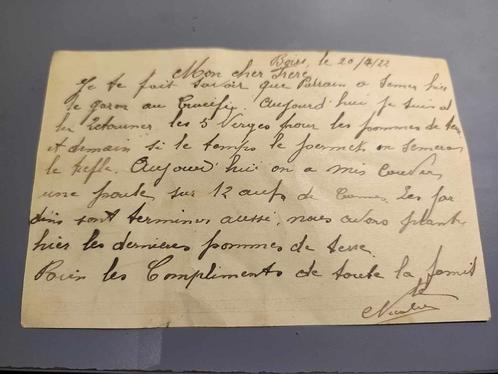 Boirs, le 20/4/22
Mon cher Frère,
Je te fait savoir que Parrain a semer hier
le garou au Crucifix. Aujourd'hui je suis à
les retourner les 5 Verges pour les pommes de terre
et demain si le temps le permet on semeras
le trèfle. Aujourd'hui on a mis couver
une poule sur 12 œufs de Cannes. Les jar
dins sont terminer aussi, nous avons planter
hier les dernières pommes de terre.
Bien les Compliments de toute la famil
le